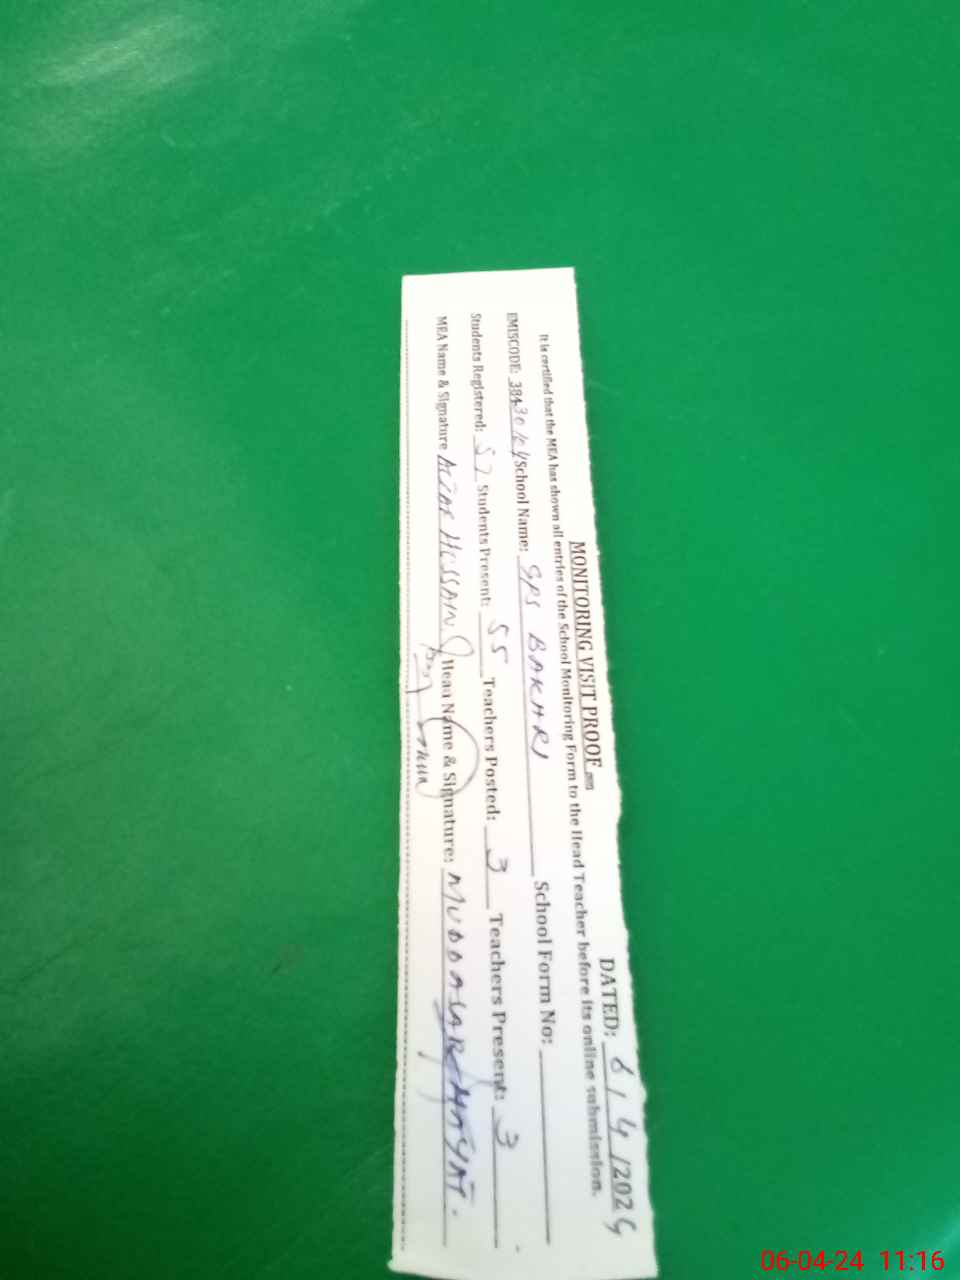 MONITORING VISIT PROOF
DATED: 6/4/2024
It is certified that the MEA has shown all entries of the School Monitoring Form to the Head Teacher before its online submission.
EMISCODE: 384301 School Name: GPS BAKHRI School Form No:
Students Registered: 57 Students Present: 55 Teachers Posted: 3 Teachers Present: 3
MEA Name & Signature HUSSAIN Head Name & Signature: MUDDASAR HAYAT.
06-04-24 11:16